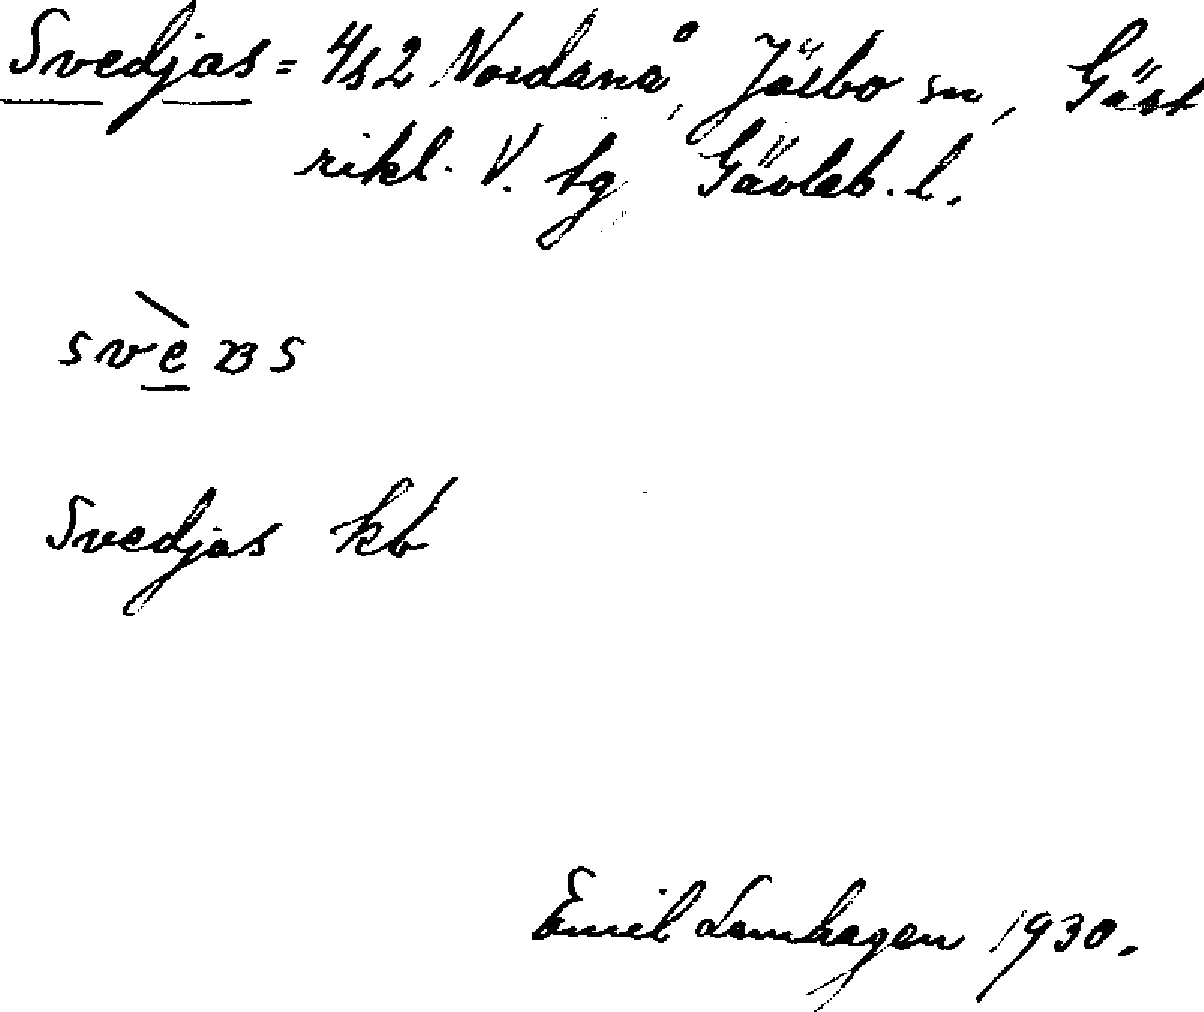 Svedjas = 4/s2 Nordanå, Järbo sn, Gäst
rikl. V. tg Gävleb. l.
Svedjas kb
Emil Lamhagen 1930.